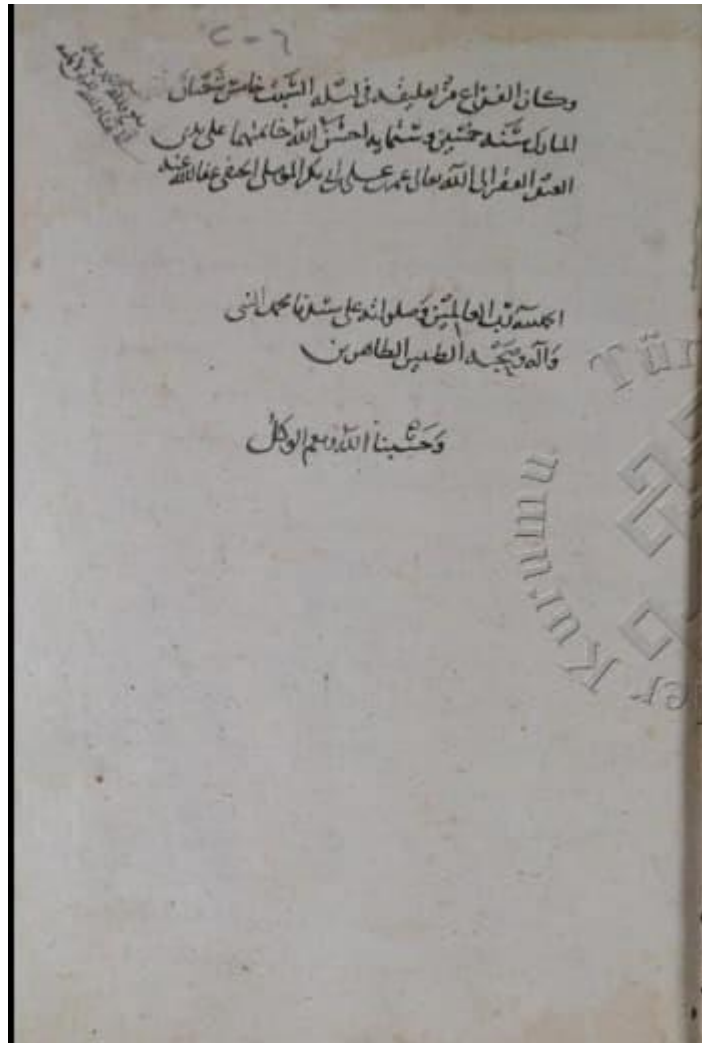 ٢٠٦
وكان الفراغ من تعليقه في ليلة السبت خامس شعبان
المبارك سنة خمسين وستماية احسن الله خاتمتها على يدي
العبد الفقير الى الله تعالى عمر بن علي بن ابي بكر الموصلي الحنفي عفا الله عنه
الحمد لله رب العالمين وصلواته على سيدنا محمد النبي
وآله وصحبه الطيبين الطاهرين
وحسبنا الله ونعم الوكيل
er Kurumu
Tür